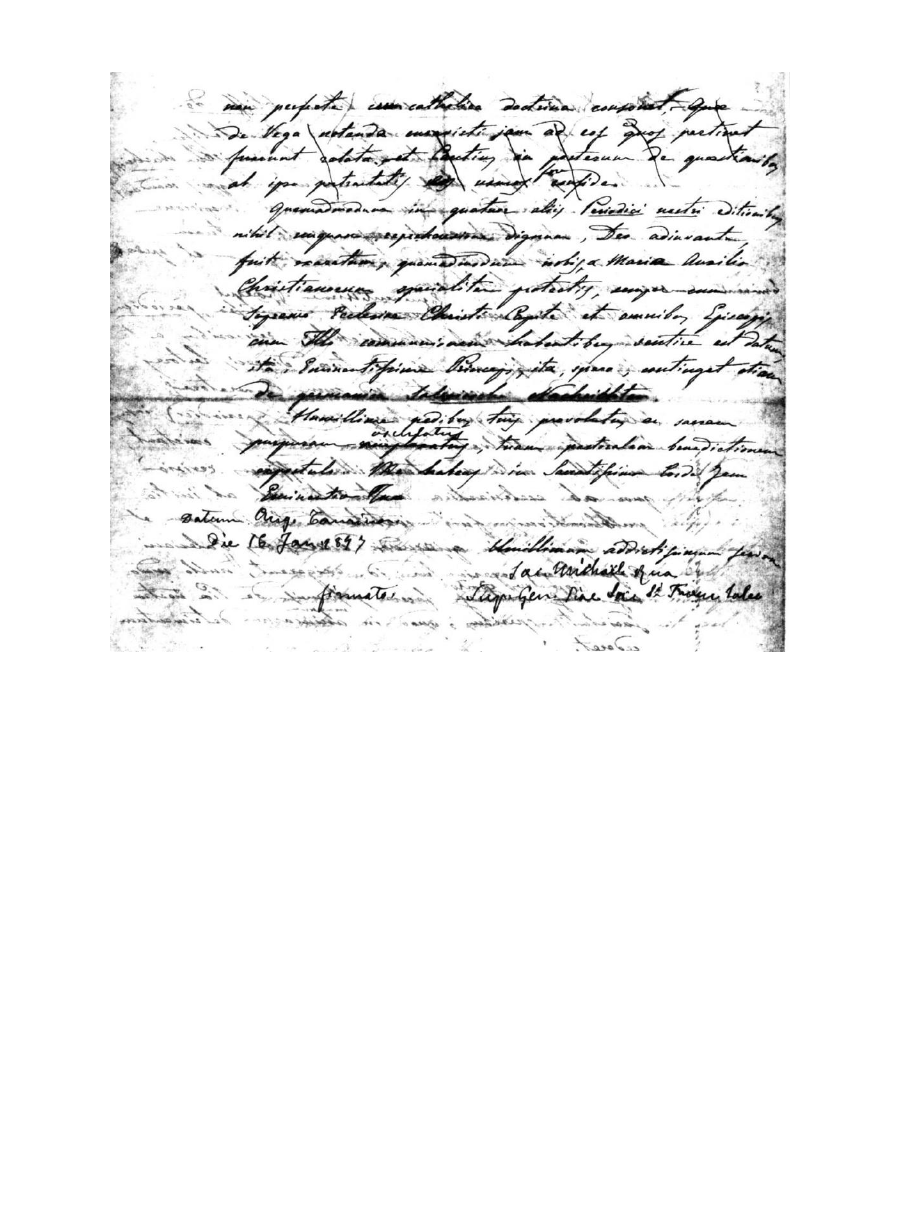 non perfecte cum catholica doctrina consonet. Quae
de Vega notanda conspicti jam ad eos quos pertinet
fuerunt relata, et cautius in posterum de quaestionibus
ab ipso pertractatis nos usuros fore confido.
Quemadmodum in quatuor aliis Periodici nostri editionibus
nihil unquam reprehensione dignum, Deo adiuvante,
fuit notatum, quemadmodum nobis, a Maria Auxilio
Christianorum specialiter protectis, semper cum
Supremo Ecclesiae Christi Capite et omnibus Episcopis
cum Illo communionem habentibus sentire est datum
ita, Eminentissime Princeps, ita, spero, continget etiam
de germanica salesianische Nachrichten.
Humillime pedibus tuis provolutus ac sacram
purpuram osculatus, tuam pastoralem benedictionem
expostulo. Me habeas in Sanctissimo Corde Jesu
Eminentiae Tuae
Datum Aug. Taurinor.
Die 16 Jan. 1897
Humillimum addictissimum servum
Sac. Michaël Rua
firmato:
Sup. Gen. Piae Soc. S.ti Franc. Sales